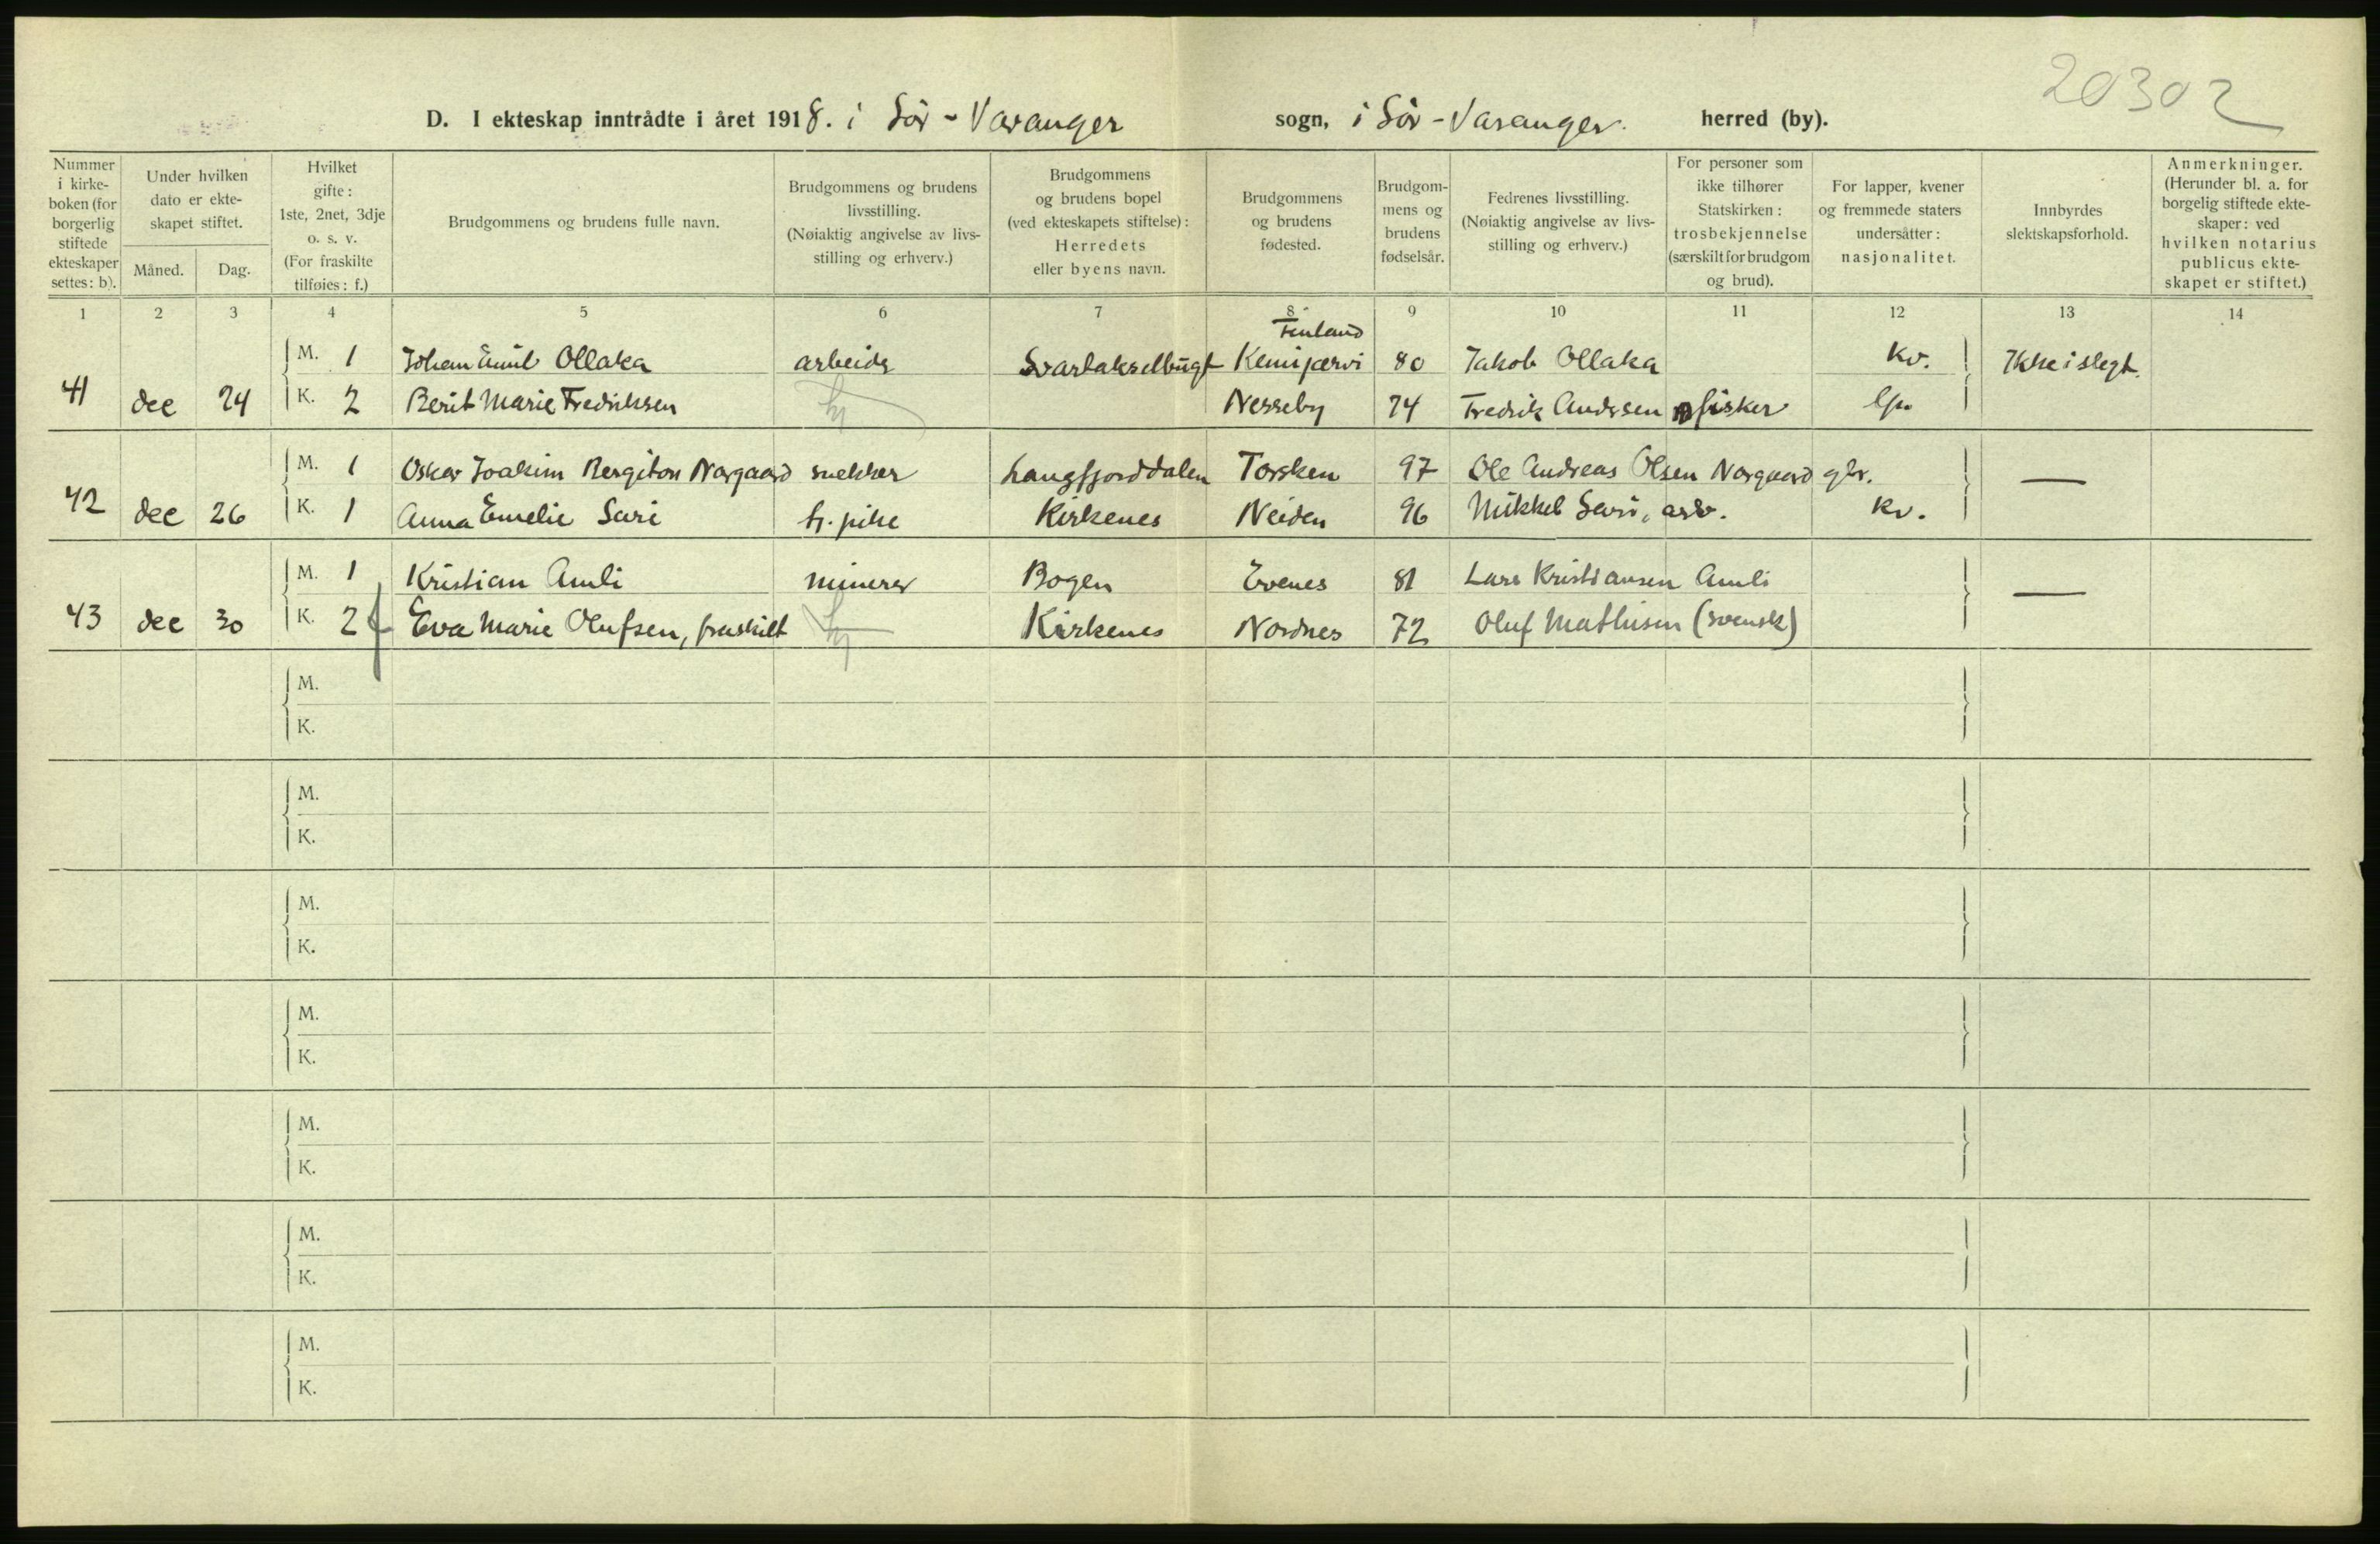 20302
D. I ekteskap inntrådte i året 1918. i Sör-Varanger sogn, i Sör-Varanger. herred (by).
Nummer i kirke-boken (for borgerlig stiftede ekteskaper settes: b).
Under hvilken dato er ekte-skapet stiftet.
Måned. Dag.
Hvilket gifte: 1ste, 2net, 3dje o. s. v. (For fraskilte tilføies: f.)
Brudgommens og brudens fulle navn.
Brudgommens og brudens livsstilling. (Nøiaktig angivelse av livs-stilling og erhverv.)
Brudgommens og brudens bopel (ved ekteskapets stiftelse): Herredets eller byens navn.
Brudgommens og brudens fødested.
Brudgom-mens og brudens fødselsår.
Fedrenes livsstilling. (Nøiaktig angivelse av livs-stilling og erhverv.)
For personer som ikke tilhører Statskirken: trosbekjennelse (særskilt for brudgom og brud).
For lapper, kvener og fremmede staters undersåtter: nasjonalitet.
Innbyrdes slektskapsforhold.
Anmerkninger. (Herunder bl. a. for borgelig stiftede ekte-skaper: ved hvilken notarius publicus ekte-skapet er stiftet.)
1 2 3 4 5 6 7 8 9 10 11 12 13 14
Finland
M. 1 Johan Emil Ollaka arbeidr Svartakselbugt Kemijærvi 80 Jakob Ollaka kv. Ikke i slegt.
41 dec 24 K. 2 Berit Marie Fredriksen hj Nesseby 74 Fredrik Andersen fisker lp.
M. 1 Oskar Joakim Bergiton Norgaard snekker Langfjorddalen Torsken 97 Ole Andreas Olsen Norgaard gbr. —
42 dec 26 K. 1 Anna Emelie Sari tj. pike Kirkenes Neiden 96 Mikkel Sari, arb. kv.
M. 1 Kristian Amli minerer Bogen Evenes 81 Lars Kristiansen Amli —
43 dec 30 K. 2 f Eva Marie Olufsen, fraskilt hj Kirkenes Nordnes 72 Oluf Mathisen (svensk)
M.
K.
M.
K.
M.
K.
M.
K.
M.
K.
M.
K.
M.
K.